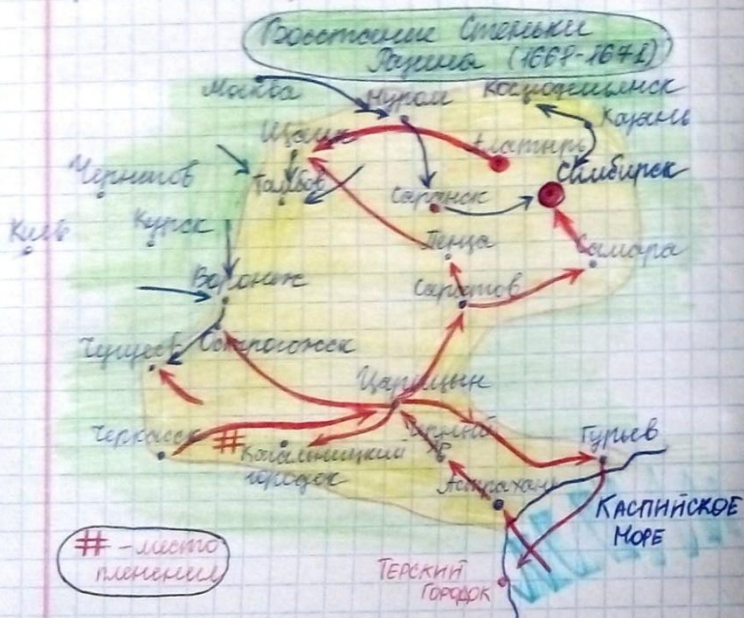 Восстание Степьки
Разина (1668-1671)
Москва
Муром
Козмодемьянск
Казань
Шацк
Алатырь
Симбирск
Чернигов
Тамбов
Саранск
Киев
Курск
Пенза
Самара
Воронеж
Саратов
Чугуев
Острогожск
Царицын
Черкасск
#
Кагальницкий
городок
Чёрный
Яр
Гурьев
Астрахань
КАСПИЙСКОЕ
МОРЕ
# - место
пленения
ТЕРСКИЙ
ГОРОДОК